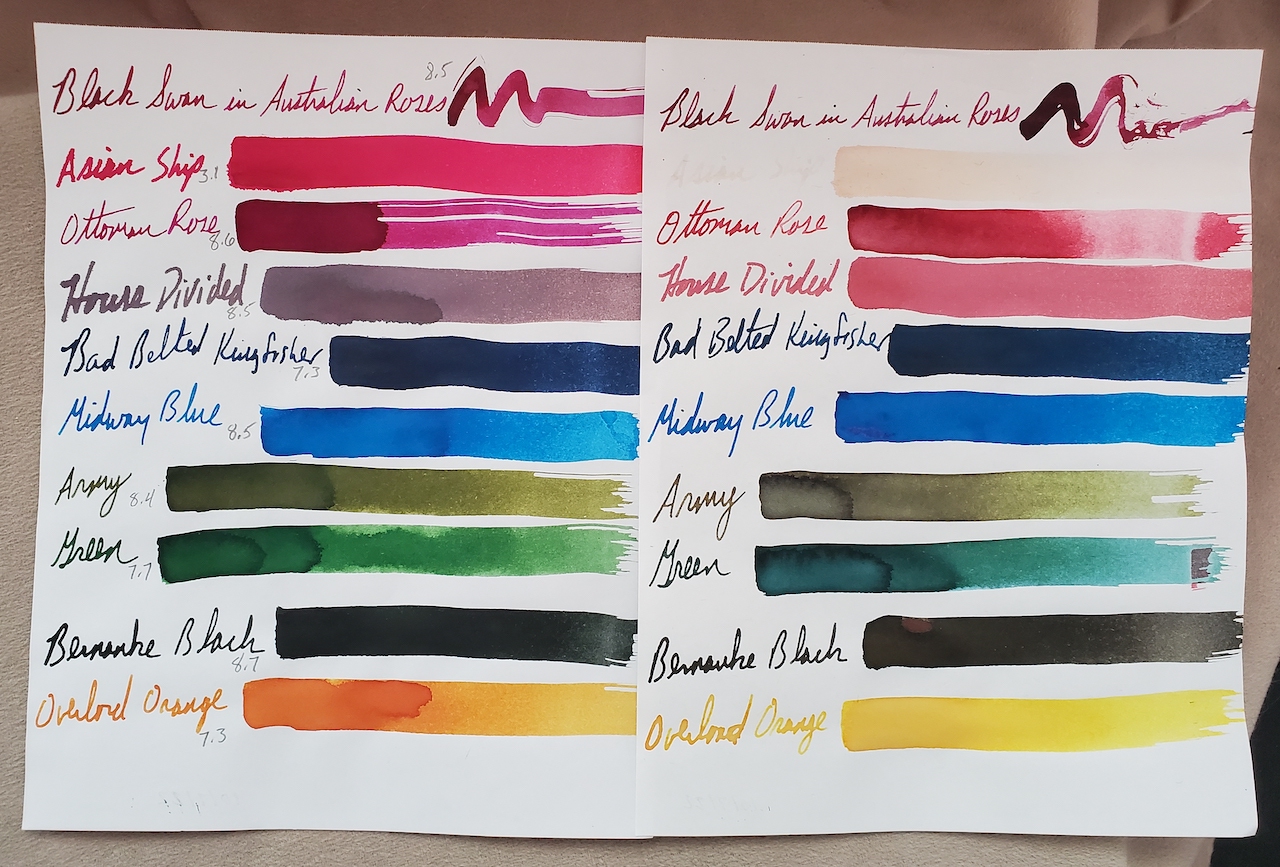 Black Swan in Australian Roses 8.5
Asian Ship 3.1
Ottoman Rose 8.6
House Divided 8.5
Bad Belted Kingfisher 7.3
Midway Blue 8.5
Army 8.4
Green 7.7
Bernanke Black 8.7
Overlord Orange 7.3
Black Swan in Australian Roses
Asian Ship
Ottoman Rose
House Divided
Bad Belted Kingfisher
Midway Blue
Army
Green
Bernanke Black
Overlord Orange